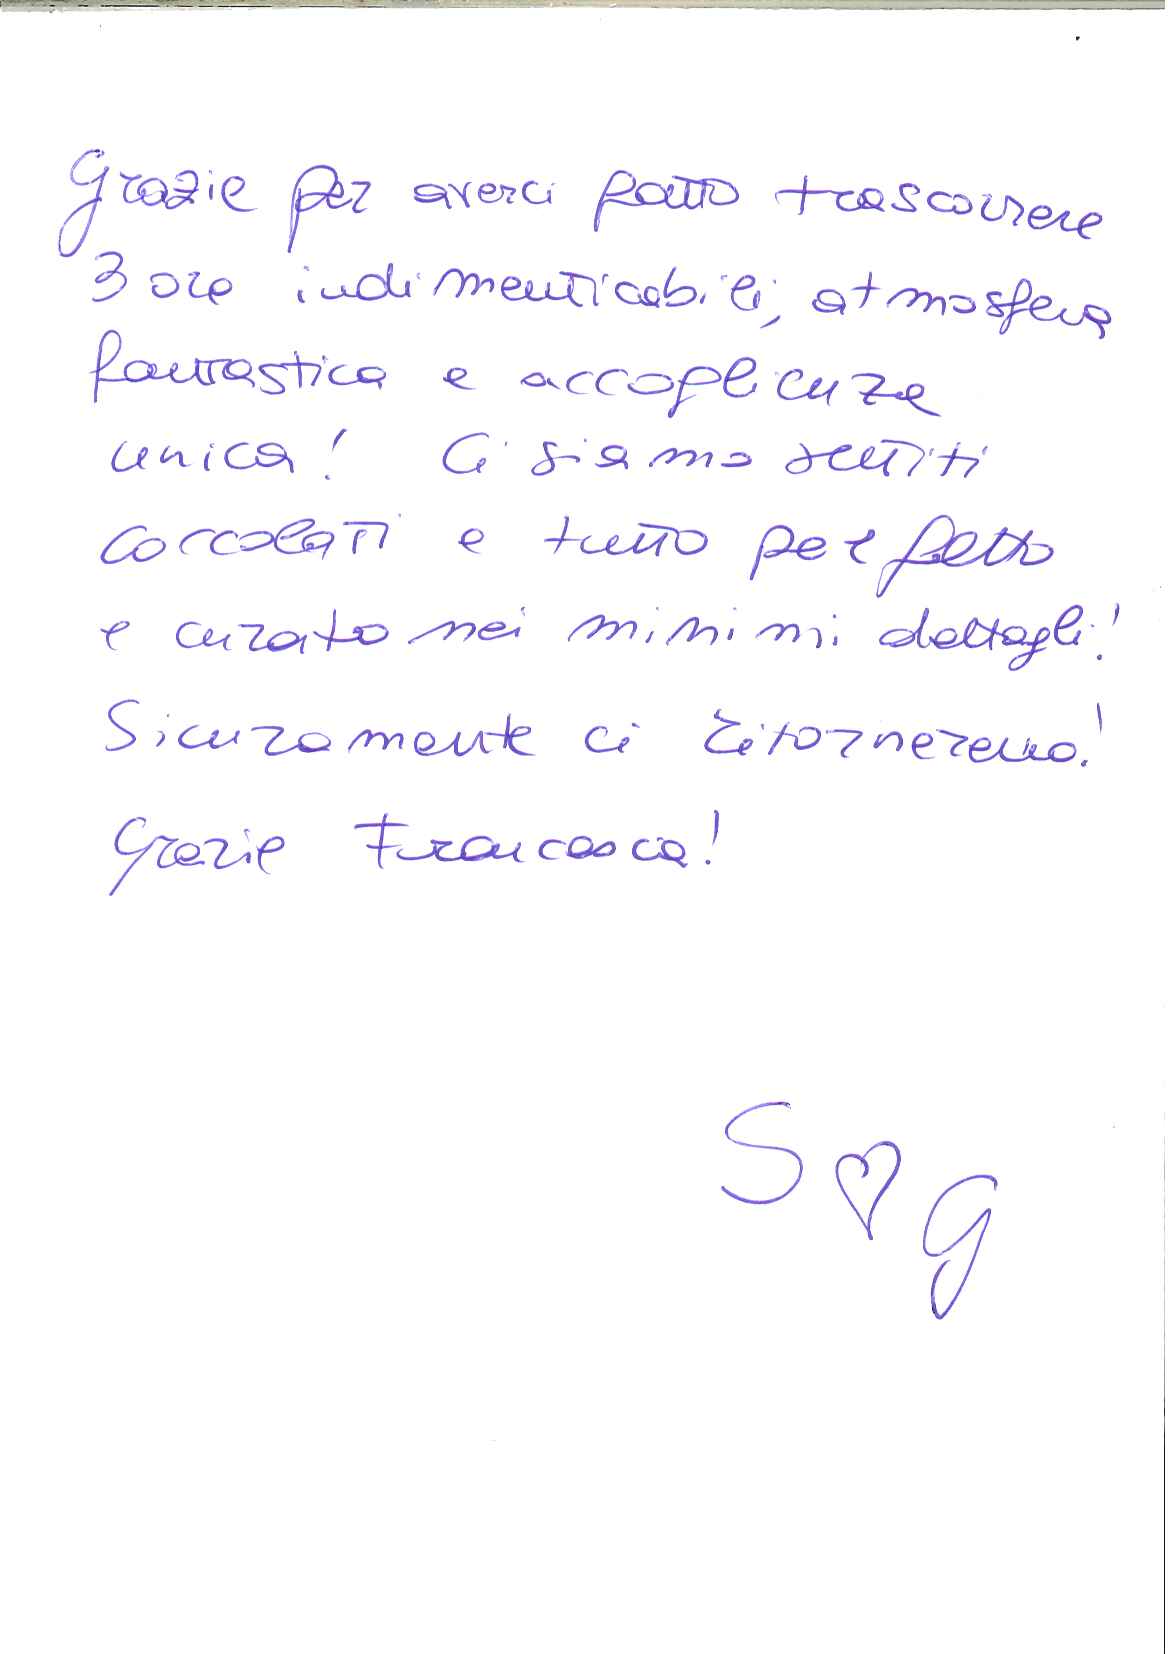 Grazie per averci fatto trascorrere
3 ore indimenticabili, atmosfera
fantastica e accoglienza
unica! Ci siamo sentiti
coccolati e tutto perfetto
e curato nei minimi dettagli!
Sicuramente ci ritorneremo!
Grazie Francesca!
S ♡ G